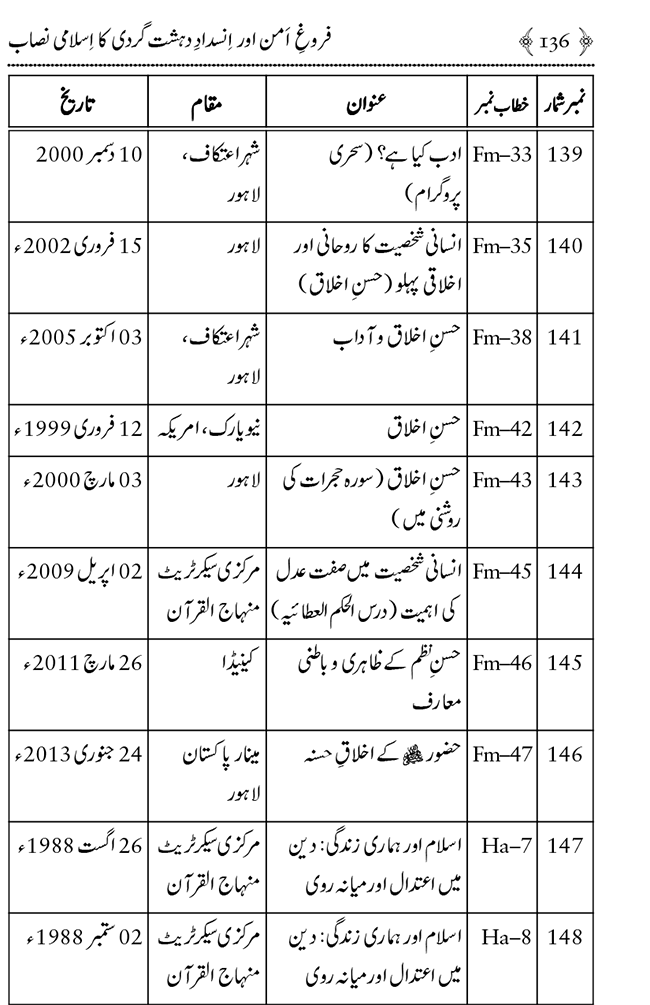 ﴿ 136 ﴾ فروغِ اَمن اور اِنسدادِ دہشت گردی کا اِسلامی نصاب
نمبر شمار خطاب نمبر عنوان مقام تاریخ
139 Fm–33 ادب کیا ہے؟ (سحری شہر اعتکاف، 10 دسمبر 2000
پروگرام) لاہور
140 Fm–35 انسانی شخصیت کا روحانی اور لاہور 15 فروری 2002ء
اخلاقی پہلو (حسنِ اخلاق)
141 Fm–38 حسنِ اخلاق و آداب شہر اعتکاف، 03 اکتوبر 2005ء
لاہور
142 Fm–42 حسنِ اخلاق نیویارک، امریکہ 12 فروری 1999ء
143 Fm–43 حسنِ اخلاق (سورہ حجرات کی لاہور 03 مارچ 2000ء
روشنی میں)
144 Fm–45 انسانی شخصیت میں صفت عدل مرکزی سیکرٹریٹ 02 اپریل 2009ء
کی اہمیت (درس الحکم العطائیہ) منہاج القرآن
145 Fm–46 حسنِ نظم کے ظاہری و باطنی کینیڈا 26 مارچ 2011ء
معارف
146 Fm–47 حضور ﷺ کے اخلاقِ حسنہ مینار پاکستان 24 جنوری 2013ء
لاہور
147 Ha–7 اسلام اور ہماری زندگی: دین مرکزی سیکرٹریٹ 26 اگست 1988ء
میں اعتدال اور میانہ روی منہاج القرآن
148 Ha–8 اسلام اور ہماری زندگی: دین مرکزی سیکرٹریٹ 02 ستمبر 1988ء
میں اعتدال اور میانہ روی منہاج القرآن